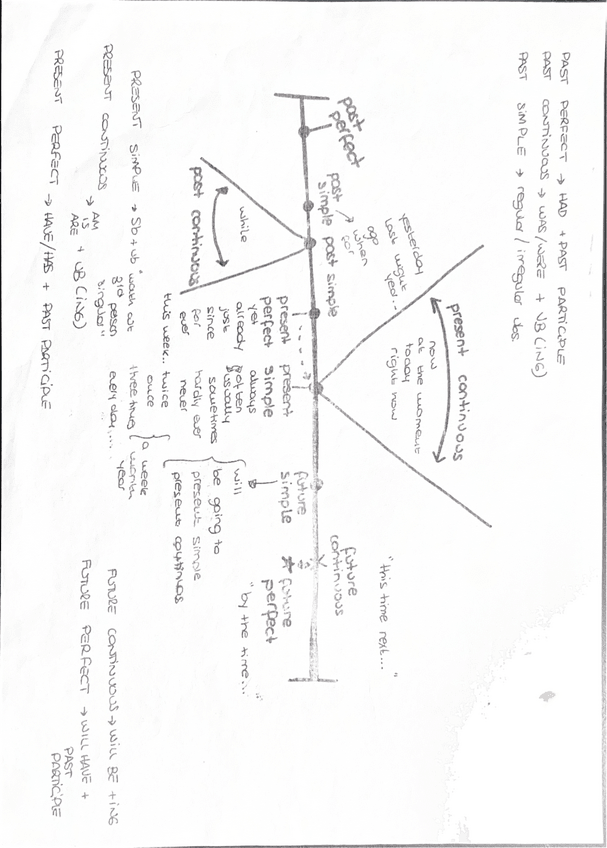 PAST PERFECT → HAD + PAST PARTICIPLE
PAST CONTINUOUS → WAS/WERE + VB (ING)
PAST SIMPLE → regular/irregular vbs.
"this time next..."
present continuous
now
at the moment
today
right now
yesterday
last night
year...
ago
when
for
past perfect
past simple
past simple
future continuous
while
past continuous
present perfect
yet
already
just
since
for
ever
this week..
present simple
always
often
usually
sometimes
hardly ever
never
twice
once
three times
every day....
a week
month
year
future simple
will
be going to
present simple
present continuos
future perfect
"by the time..."
PRESENT SIMPLE → Sb + vb "watch out 3rd person singular"
PRESENT CONTINUOUS → AM IS ARE + VB (ING)
PRESENT PERFECT → HAVE/HAS + PAST PARTICIPLE
FUTURE CONTINUOUS → WILL BE + ING
FUTURE PERFECT → WILL HAVE + PAST PARTICIPLE